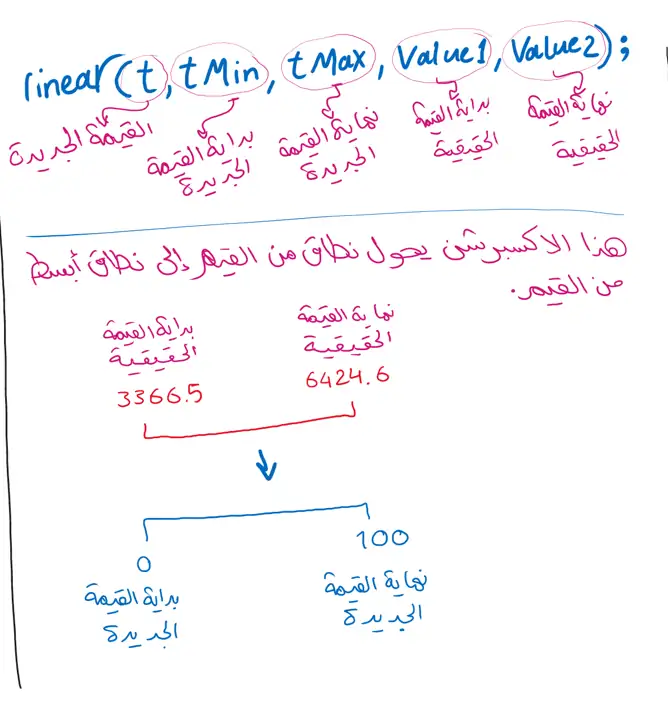 linear(t, tMin, tMax, Value1, Value2);
القيمة الجديدة
بداية القيمة
الجديدة
نهاية القيمة
الجديدة
بداية القيمة
الحقيقية
نهاية القيمة
الحقيقية
هذا الاكسبرشن يحول نطاق من القيم إلى نطاق أبسط
من القيم.
بداية القيمة
الحقيقية
3366.5
نهاية القيمة
الحقيقية
6424.6
0
بداية القيمة
الجديدة
100
نهاية القيمة
الجديدة